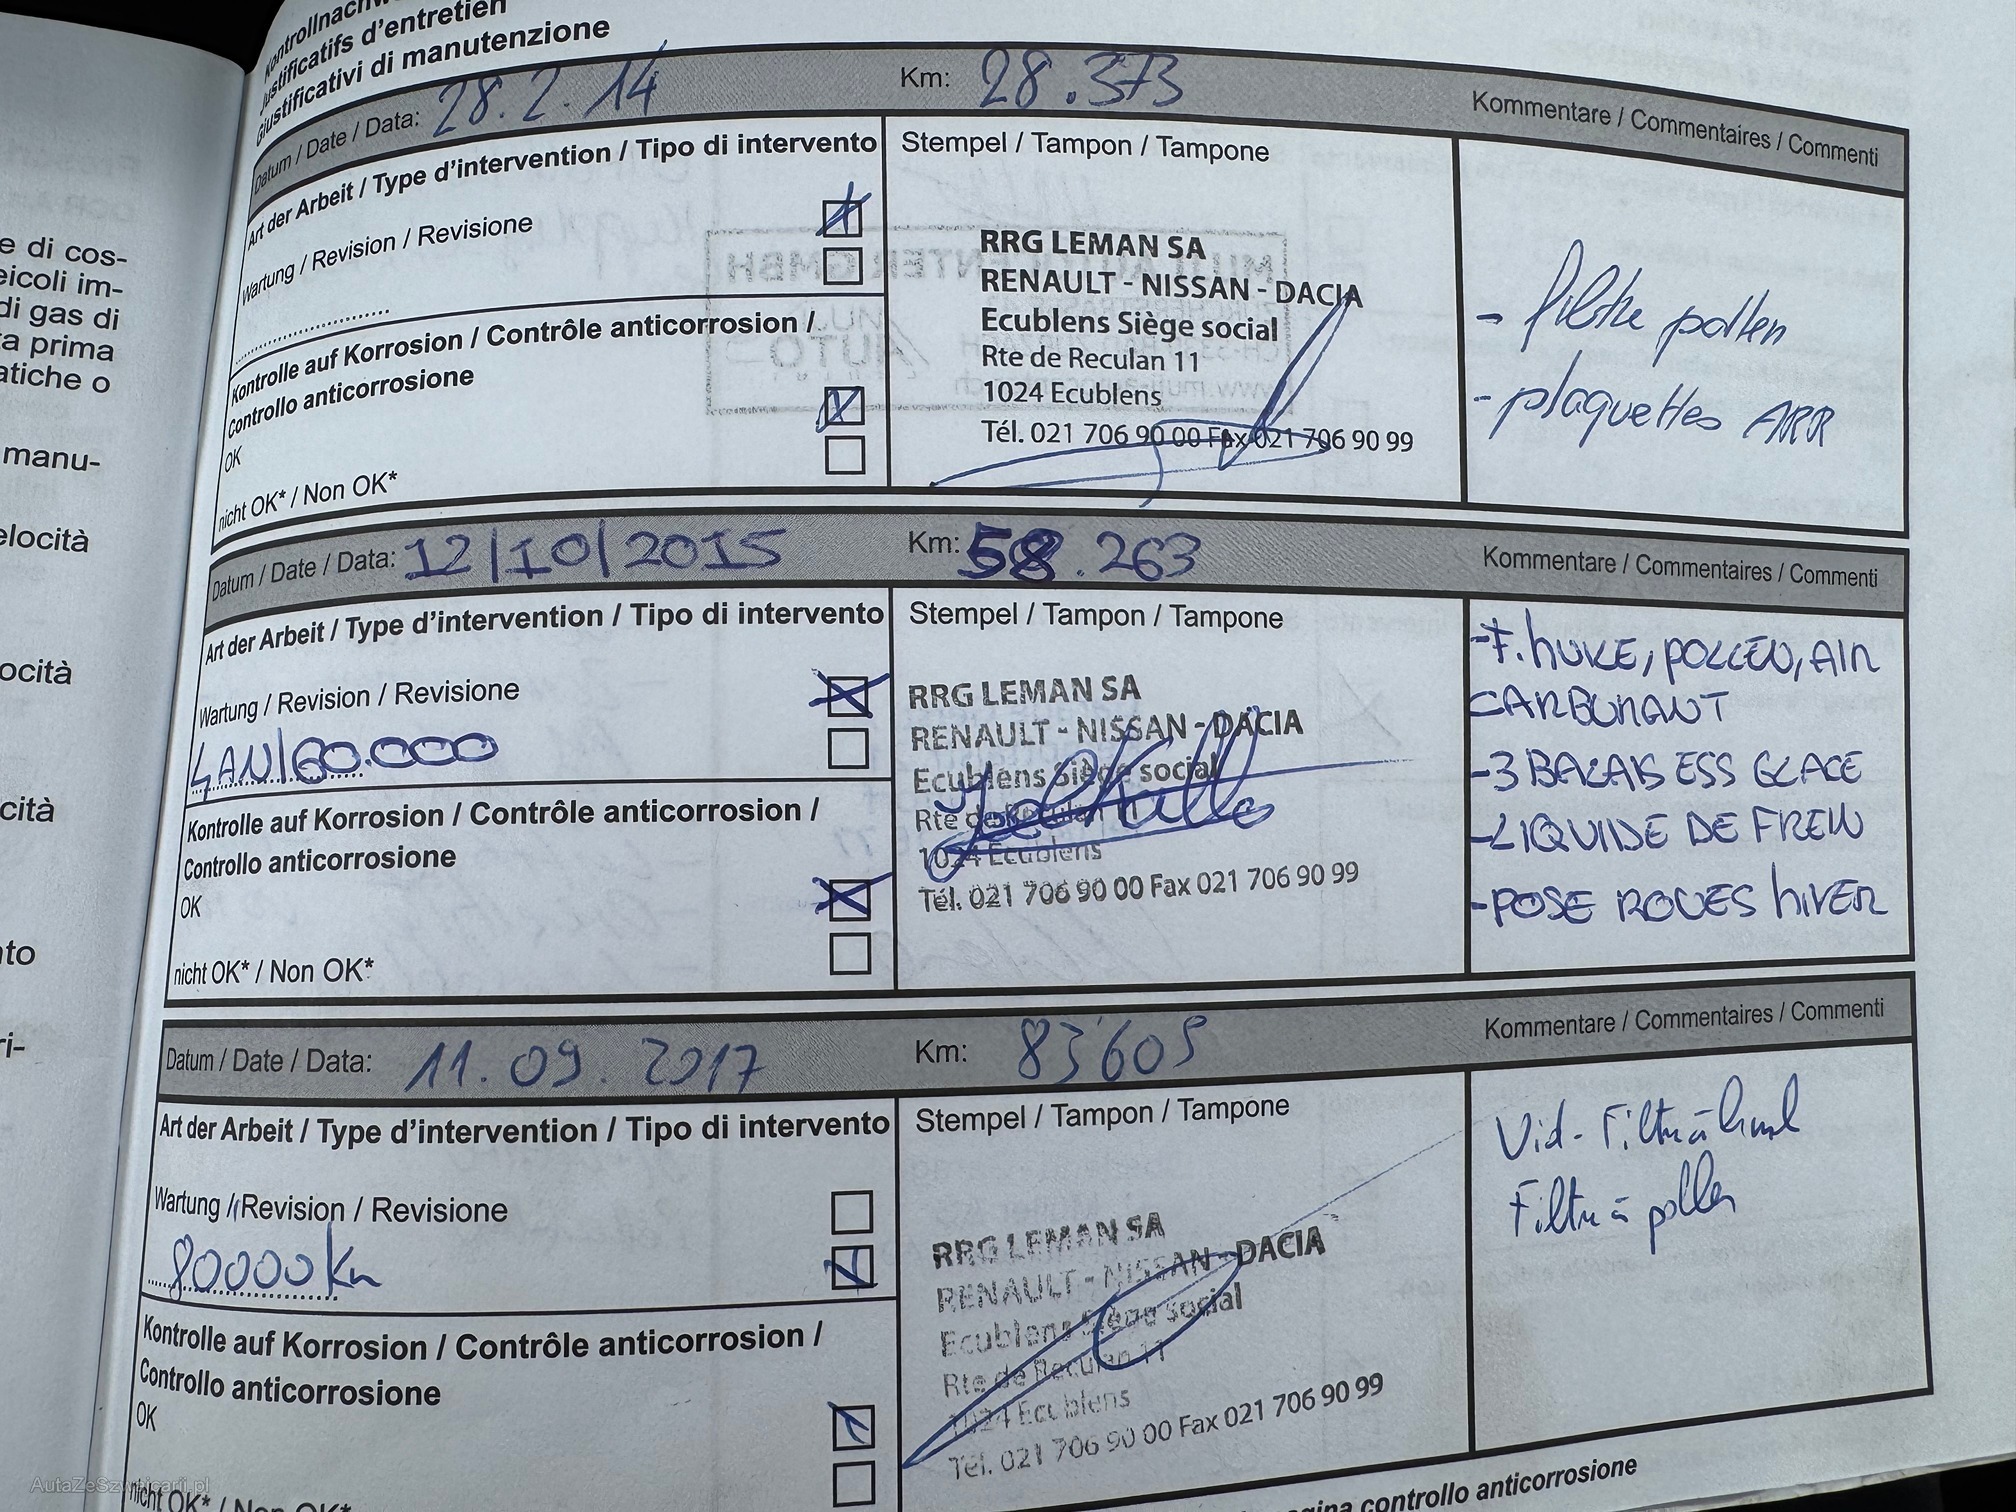 Kontrollnachw
Justificatifs d'entretien
Giustificativi di manutenzione
Datum / Date / Data: 28.2.14 Km: 28.373 Kommentare / Commentaires / Commenti
Art der Arbeit / Type d'intervention / Tipo di intervento
Wartung / Revision / Revisione
Kontrolle auf Korrosion / Contrôle anticorrosion /
Controllo anticorrosione
OK
nicht OK* / Non OK*
Stempel / Tampon / Tampone
RRG LEMAN SA
RENAULT - NISSAN - DACIA
Ecublens Siège social
Rte de Reculan 11
1024 Ecublens
Tél. 021 706 90 00 Fax 021 706 90 99
- filtre pollen
- plaquettes ARR
Datum / Date / Data: 12/10/2015 Km: 58.263 Kommentare / Commentaires / Commenti
Art der Arbeit / Type d'intervention / Tipo di intervento
Wartung / Revision / Revisione
4AN/60.000
Kontrolle auf Korrosion / Contrôle anticorrosion /
Controllo anticorrosione
OK
nicht OK* / Non OK*
Stempel / Tampon / Tampone
RRG LEMAN SA
RENAULT - NISSAN - DACIA
Ecublens Siège social
Rte de Reculan 11
1024 Ecublens
Tél. 021 706 90 00 Fax 021 706 90 99
-F. HUILE, POLLEN, AIR
CARBURANT
-3 BALAIS ESS GLACE
-LIQUIDE DE FREIN
-POSE ROUES HIVER
Datum / Date / Data: 11.09.2017 Km: 83'605 Kommentare / Commentaires / Commenti
Art der Arbeit / Type d'intervention / Tipo di intervento
Wartung / Revision / Revisione
80000 km
Kontrolle auf Korrosion / Contrôle anticorrosion /
Controllo anticorrosione
OK
nicht OK* / Non OK*
Stempel / Tampon / Tampone
RRG LEMAN SA
RENAULT - NISSAN - DACIA
Ecublens Siège social
Rte de Reculan 11
1024 Ecublens
Tél. 021 706 90 00 Fax 021 706 90 99
Vid - Filtre à huile
Filtre à pollen
gina controllo anticorrosione
e di cos-
eicoli im-
di gas di
ta prima
atiche o
manu-
elocità
ocità
cità
to
ri-
AutaZeSzwajcarii.pl